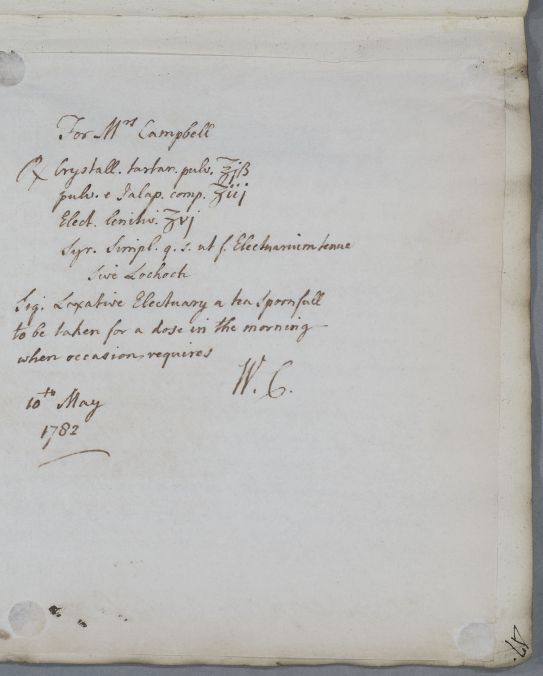 For Mrs Campbell
℞ Crystall. tartar. pulv. ℥jß
pulv. e Jalap. comp. ʒiij
Elect. lenitiv. ʒvj
Syr. Simpl. q. s. ut f. Electuarium tenue
Sive Lochoch
Sig. Laxative Electuary a tea Spoonfull
to be taken for a dose in the morning
when occasion requires
W. C.
10th May
1782
47.